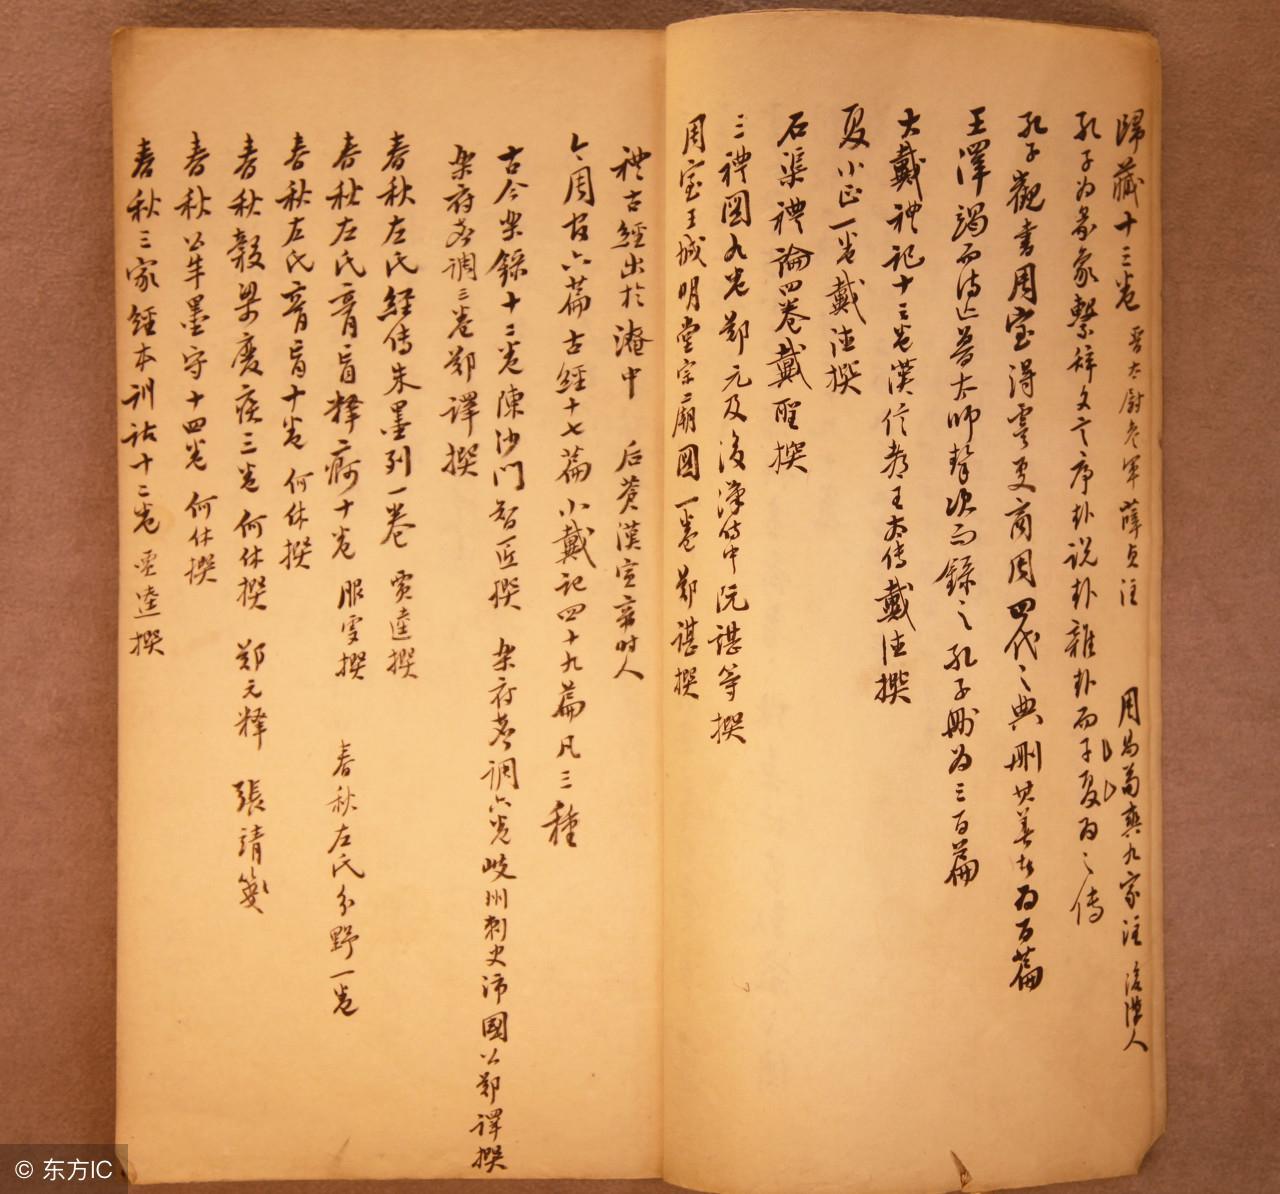 歸藏十三卷 晉太尉參軍薛貞注 周易荀爽九家注 後漢人
孔子為彖象繫辭文言序卦說卦雜卦而子夏為之傳
孔子觀書周室得虞夏商周四代之典刪其善者為百篇
王澤竭而詩亡魯太師摯次而錄之孔子刪為三百篇
大戴禮記十三卷漢信都王太傅戴德撰
夏小正一卷戴德撰
石渠禮論四卷戴聖撰
三禮圖九卷鄭元及後漢侍中阮諶等撰
周室王城明堂宗廟圖一卷鄭諶撰
禮古經出於淹中 后蒼漢宣帝時人
今周官六篇古經十七篇小戴記四十九篇凡三種
古今樂錄十二卷陳沙門智匠撰 樂府聲調六卷岐州刺史沛國公鄭譯撰
樂府聲調三卷鄭譯撰
春秋左氏經傳朱墨列一卷 賈逵撰
春秋左氏膏肓釋痾十卷 服虔撰 春秋左氏分野一卷
春秋左氏膏肓十卷 何休撰
春秋穀梁廢疾三卷 何休撰 鄭元釋 張靖箋
春秋公羊墨守十四卷 何休撰
春秋三家經本訓詁十二卷 賈逵撰
© 东方IC